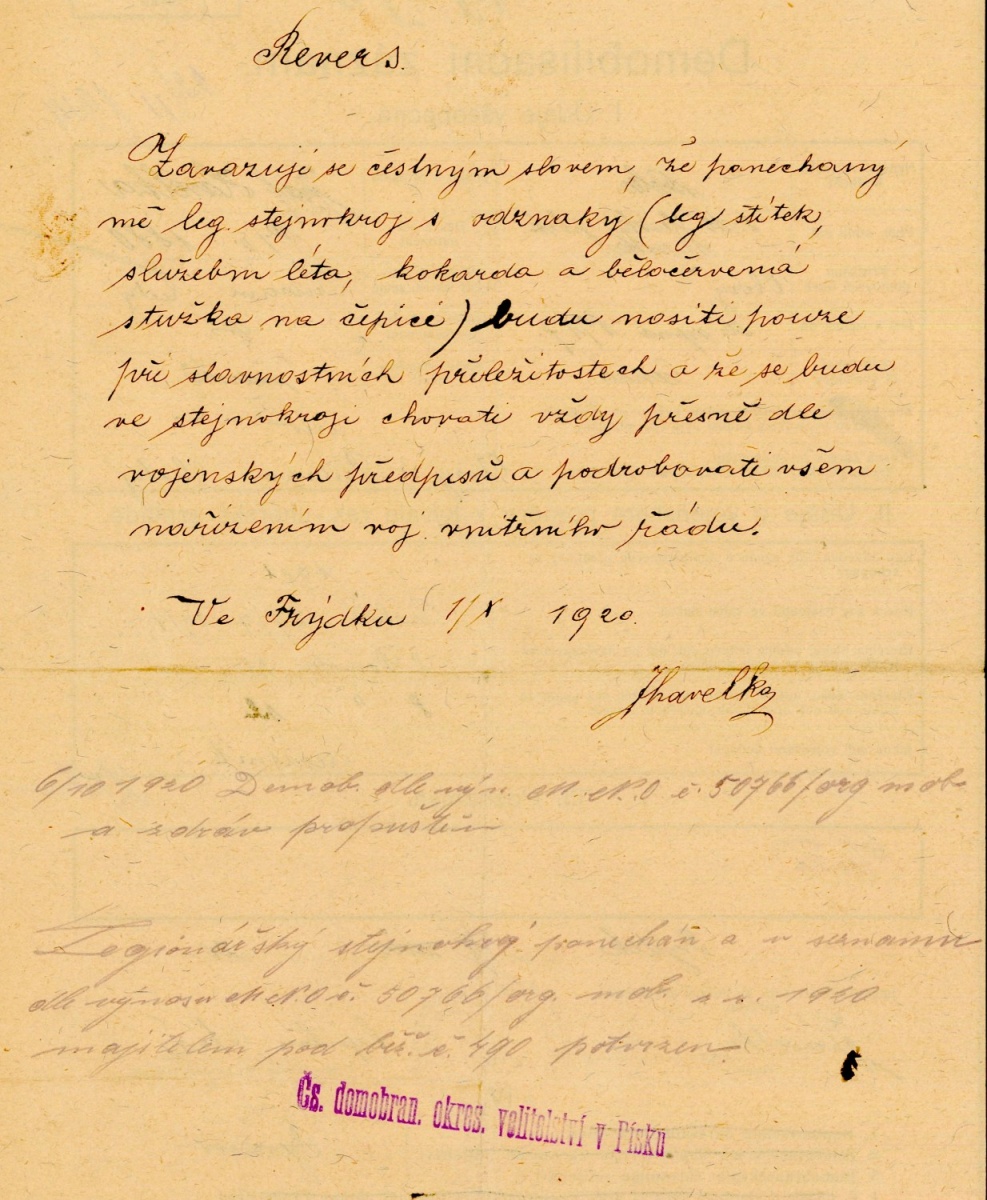 Revers.
Zavazuji se čestným slovem, že ponechaný
mě leg. stejnokroj s odznaky (leg štítek,
služební léta, kokarda a běločervená
stužka na čepici) budu nositi pouze
při slavnostních příležitostech a že se budu
ve stejnokroji chovati vždy přesně dle
vojenských předpisů a podrobovati všem
nařízením voj. vnitřního řádu.
Ve Frýdku 1/X 1920.
JHavelka
6/10 1920 Demob. dle výn. M.N.O č. 50766/org mob.
a zdráv propuštěn
Legionářský stejnokroj ponechán a v seznamu
dle výnosu M.N.O č. 50766/org. mob. 1920
majitelem pod běž. č. 490 potvrzen
Čs. domobran. okres. velitelství v Písku